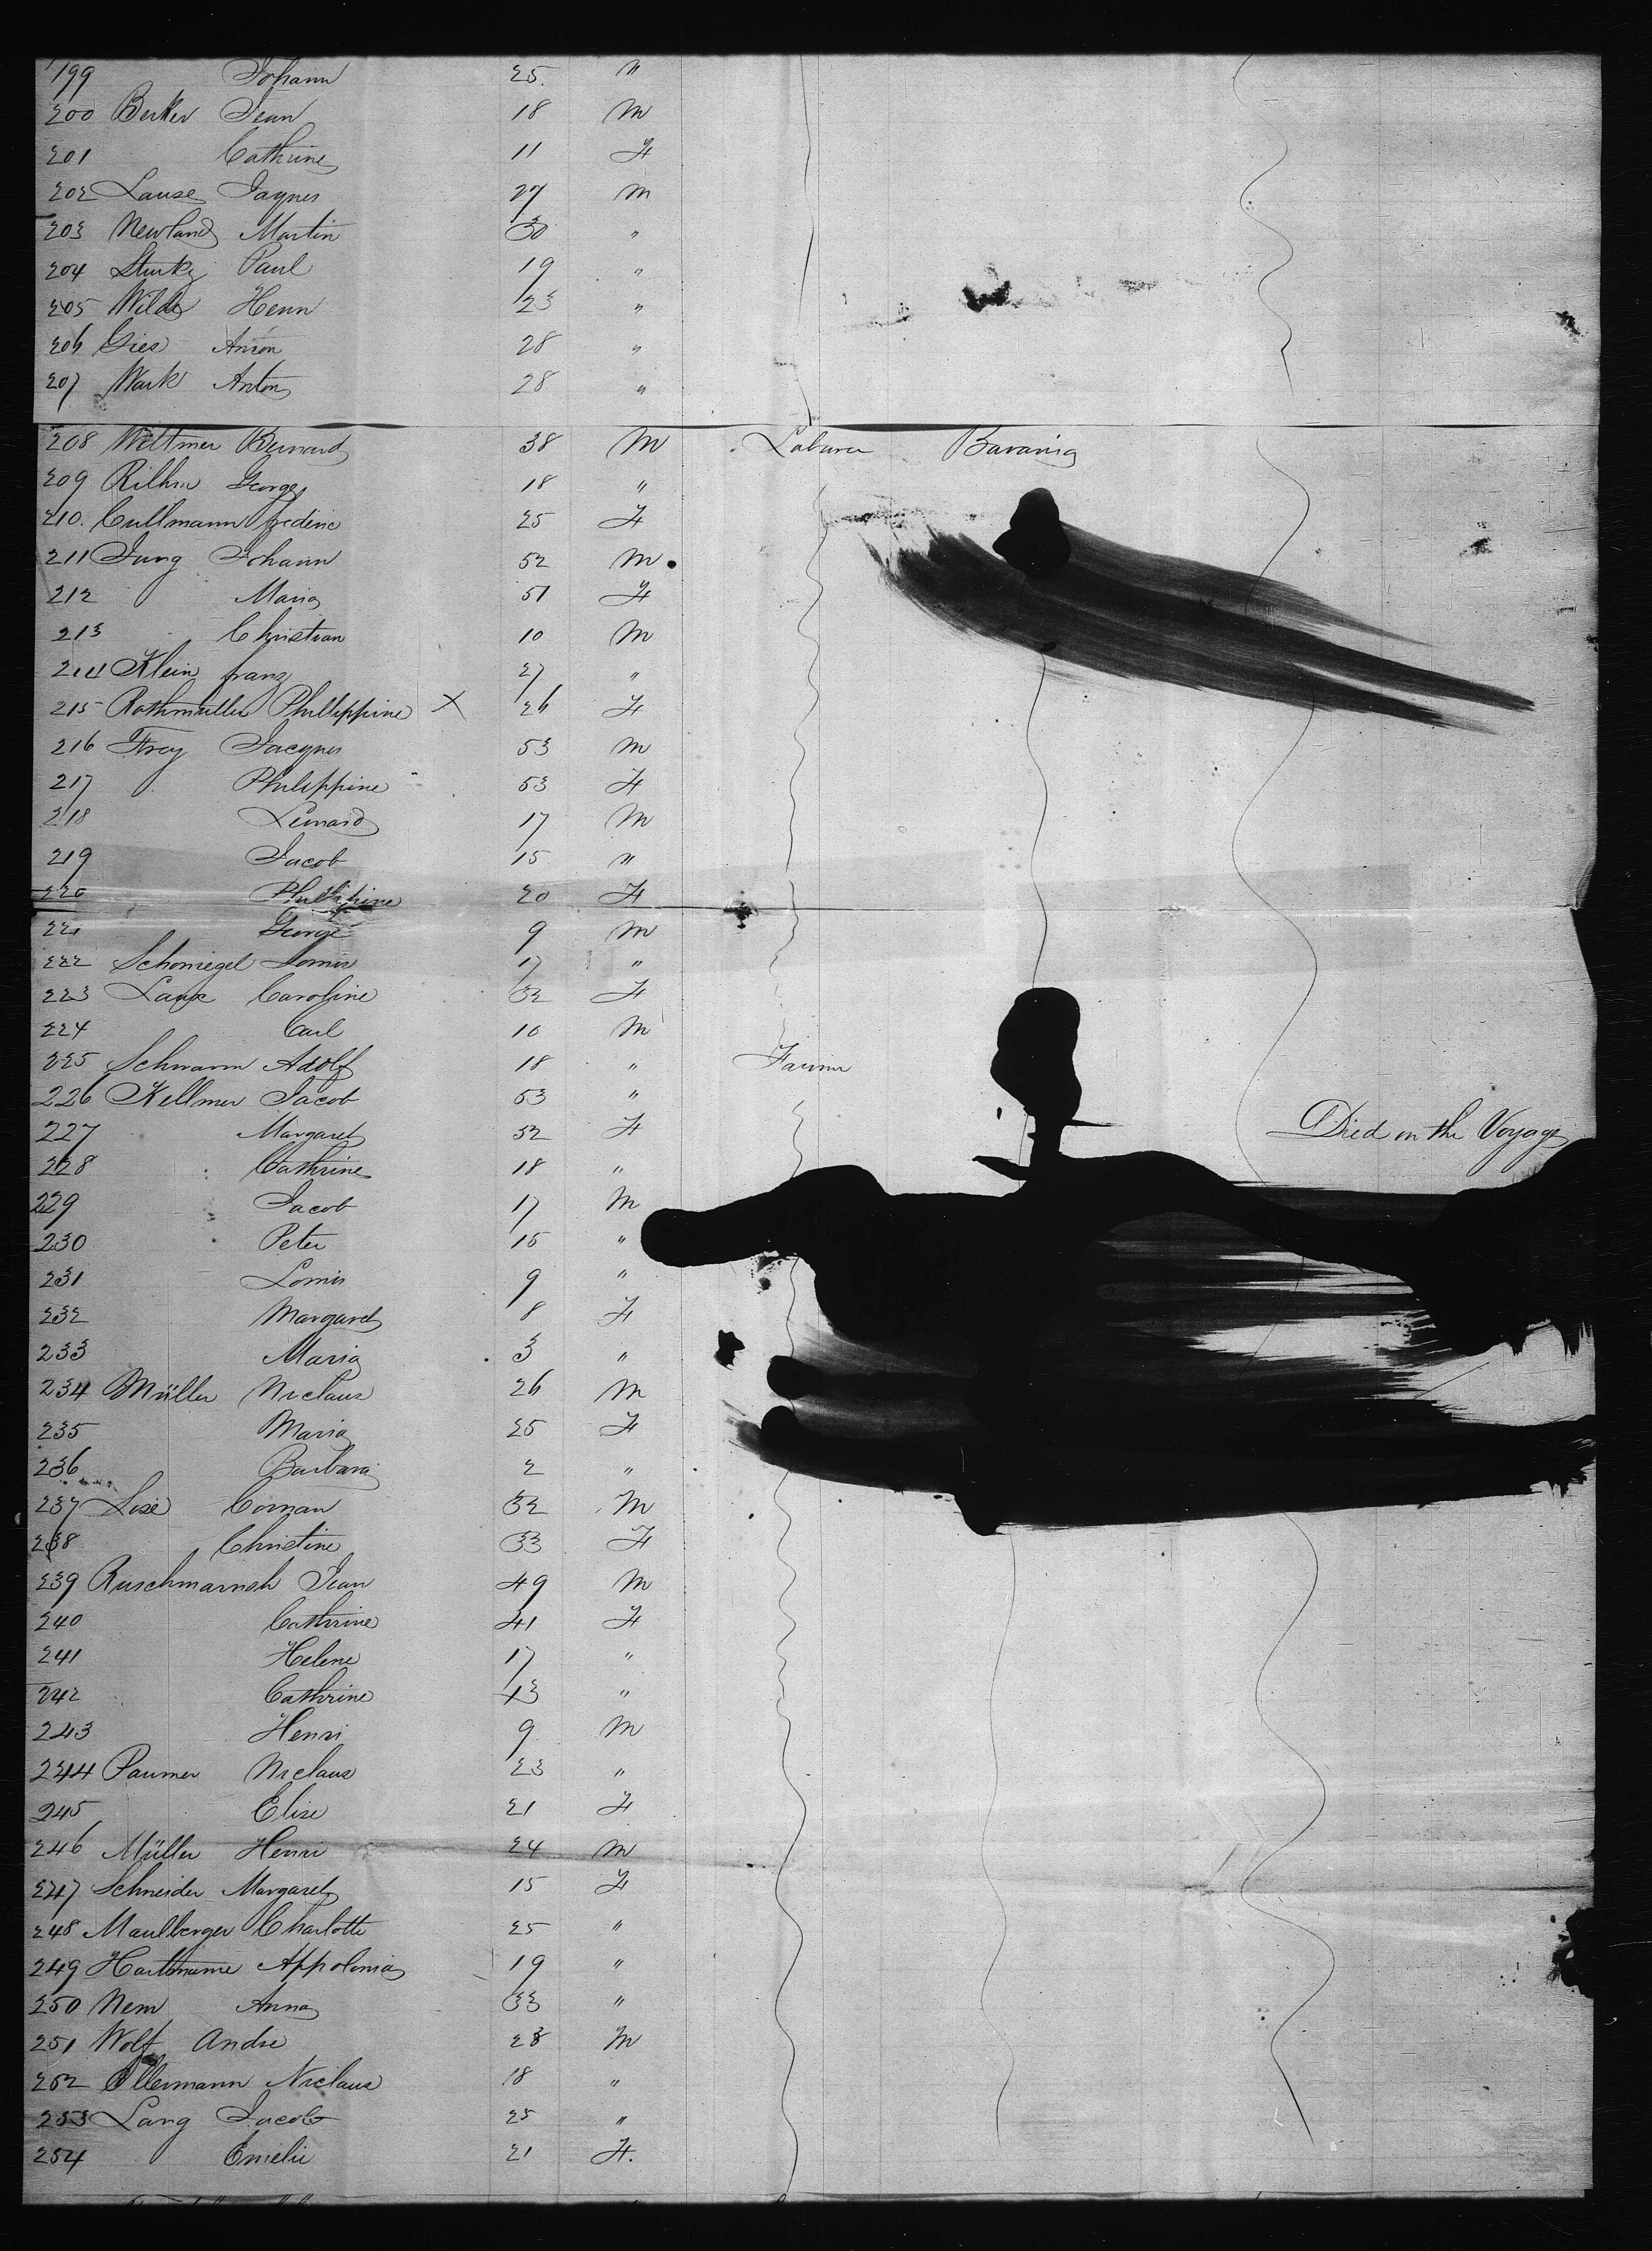 199 Johann 25. "
200 Berker Jean 18 M
201 Cathrine 11 F
202 Lause Jaques 27 M
203 Newland Martin 30 "
204 Sturky Paul 19 "
205 Wilde Henn 23 "
206 Gies Anton 28 "
207 Wark Anton 28 "
208 Wittmer Bernard 38 M Laburer Bavaria
209 Rilhm George 18 "
210. Cullmann fredine 25 F
211 Jung Johann 52 M
212 Maria 51 F
213 Christian 10 M
214 Klein franz 27 "
215 Rothmuller Phillippine X 26 F
216 Frey Jacques 53 M
217 Philippine 53 F
218 Lenard 17 M
219 Jacob 15 "
220 Phillipine 20 F
221 George 9 M
222 Schoniegel Lomis 17 "
223 Laux Caroline 32 F
224 Carl 10 M
225 Schwann Adolf 18 " Farmer
226 Kellmer Jacob 53 "
227 Margaret 52 F Died on the Voyage
228 Cathrine 18 "
229 Jacob 17 M
230 Peter 15 "
231 Lomis 9 "
232 Margaret 8 F
233 Maria 3 "
234 Müller Niclaus 26 M
235 Maria 25 F
236 Barbara 2 "
237 Lose Cornan 32 M
238 Christine 33 F
239 Ruschmarnsh Jean 49 M
240 Cathrine 41 F
241 Helene 17 "
242 Cathrine 13 "
243 Henri 9 M
244 Paumer Niclaus 23 "
245 Elise 21 F
246 Müller Henri 24 M
247 Schneider Margaret 15 F
248 Maulberger Charlotte 25 "
249 Hartmanne Appolonia 19 "
250 Nem Anna 33 "
251 Wolf Andre 28 M
252 Ellermann Niclaus 18 "
253 Lang Jacob 25 "
254 Emelie 21 F.